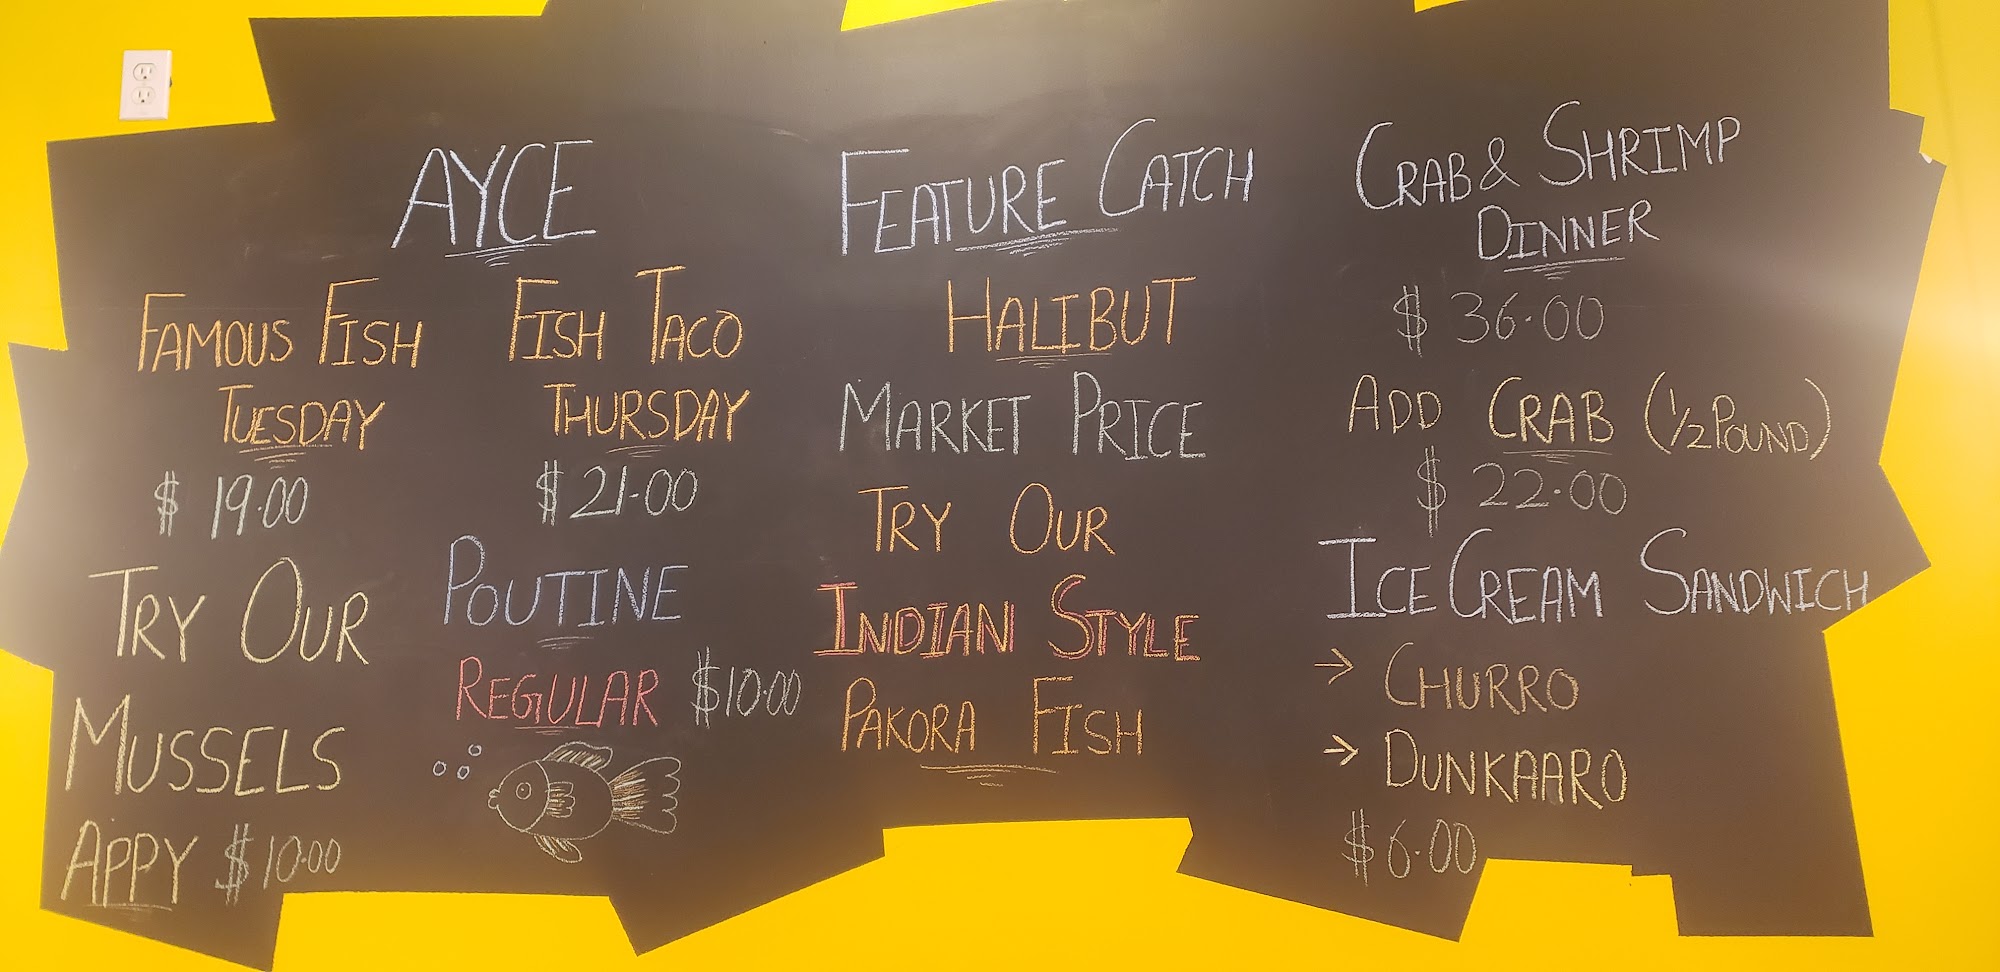 AYCE
FAMOUS FISH
TUESDAY
$ 19.00
FISH TACO
THURSDAY
$ 21.00
TRY OUR
MUSSELS
APPY $10.00
POUTINE
REGULAR $10.00
FEATURE CATCH
HALIBUT
MARKET PRICE
TRY OUR
INDIAN STYLE
PAKORA FISH
CRAB & SHRIMP
DINNER
$ 36.00
ADD CRAB (1/2 POUND)
$ 22.00
ICE CREAM SANDWICH
→ CHURRO
→ DUNKAARO
$6.00